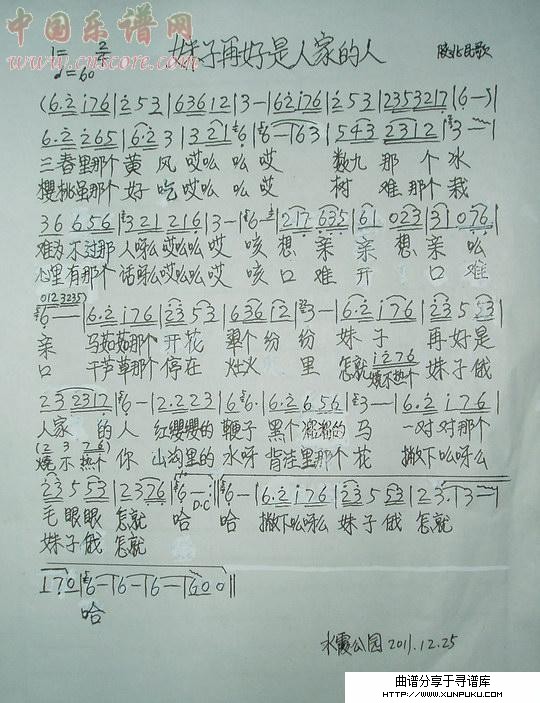 中国乐谱网
www.cnscore.com
1= 2/4
♩=60
妹子再好是人家的人
陕北民歌
(6·2 i76|2 5 3|63612|3—|62i76|2 5 3|2353217|6—)|
6·2 265|6·2 3|321 6|6—163|543 2312|3—|
三春里那个黄风哎么么哎 数九那个冰
樱桃虽那个好吃哎么么哎 树难那个栽
36 656|321 216|3—|6—|217 635|61 023|31 076|
难为不过那人呀么哎么么哎 咳想亲亲想亲么
心里有那个话呀么哎么么哎 咳口难开口难
0123235
6—|6·2 i76|23 53|636 i2|3—|6·2 i76|23 5 23|
亲 马茹茹那个开花 纷纷 妹子 再好是
口 干芦草那个停在 火里 怎就 妹子俄
i276
烧不热个
23 2317|6—|2·223|6 6·|6·2 656|3—|6·2 i76|
人家的人 红缨缨的鞭子 黑个溜溜的马 一对对那个
(2 3 76)
烧不热个你 山沟里的水呀 背洼里那个花 撇下么呀么
23 5 53|2376|6—|6—|6·2 i76|23 5 53|23·13—|
D.C
毛眼眼 怎就 哈 哈 撇下么呀么 妹子俄 怎就
妹子俄 怎就
170|6—|6—|6—|600||
哈
水霞公园 2011.12.25
曲谱分享于寻谱库
HTTP://WWW.XUNPUKU.COM